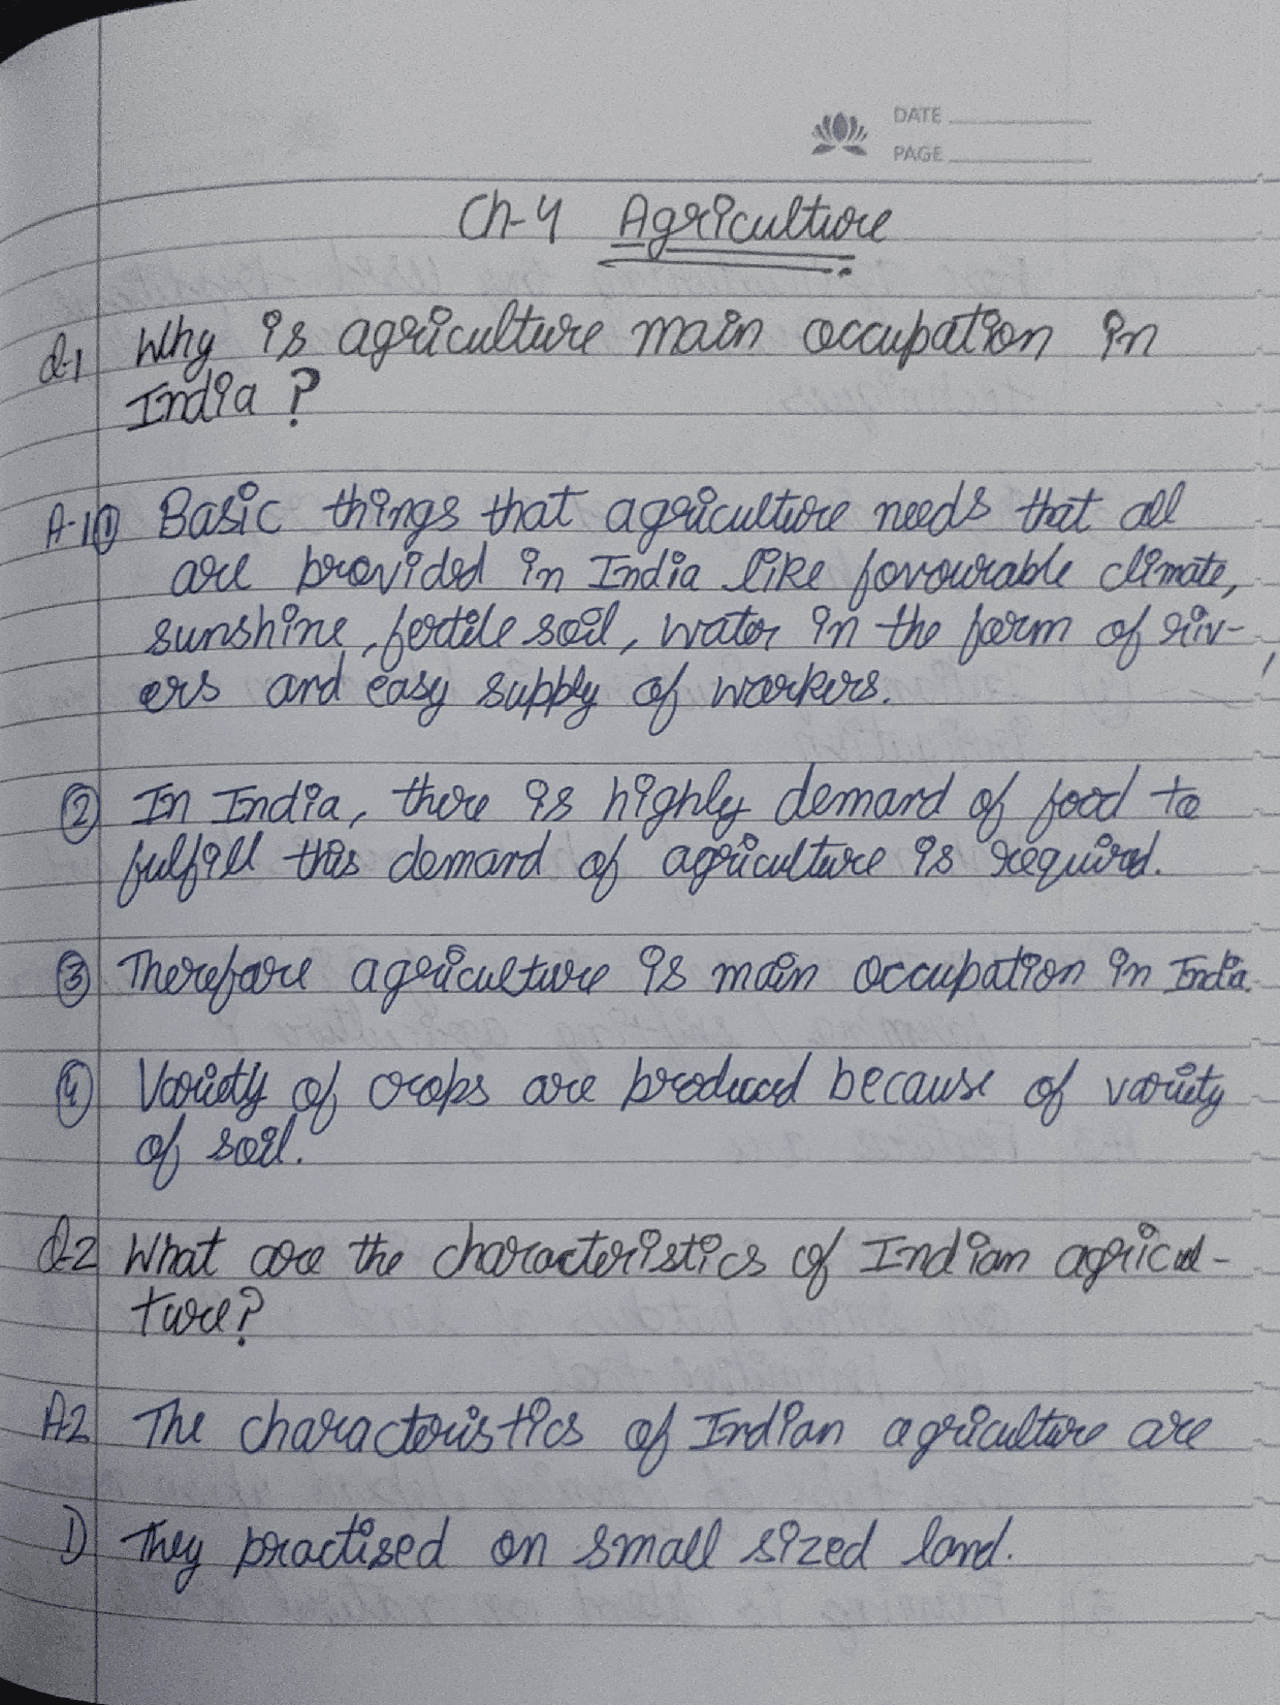 DATE
PAGE
Ch-4 Agriculture
Q-1 Why is agriculture main occupation in
India ?
A-1① Basic things that agriculture needs that all
are provided in India like favourable climate,
sunshine, fertile soil, water in the form of riv-
ers and easy supply of workers.
② In India, there is highly demand of food to
fulfill this demand of agriculture is required.
③ Therefore agriculture is main occupation in India.
④ Variety of crops are produced because of variety
of soil.
Q-2 What are the characteristics of Indian agricul-
ture?
A-2 The characteristics of Indian agriculture are
1) They practised on small sized land.